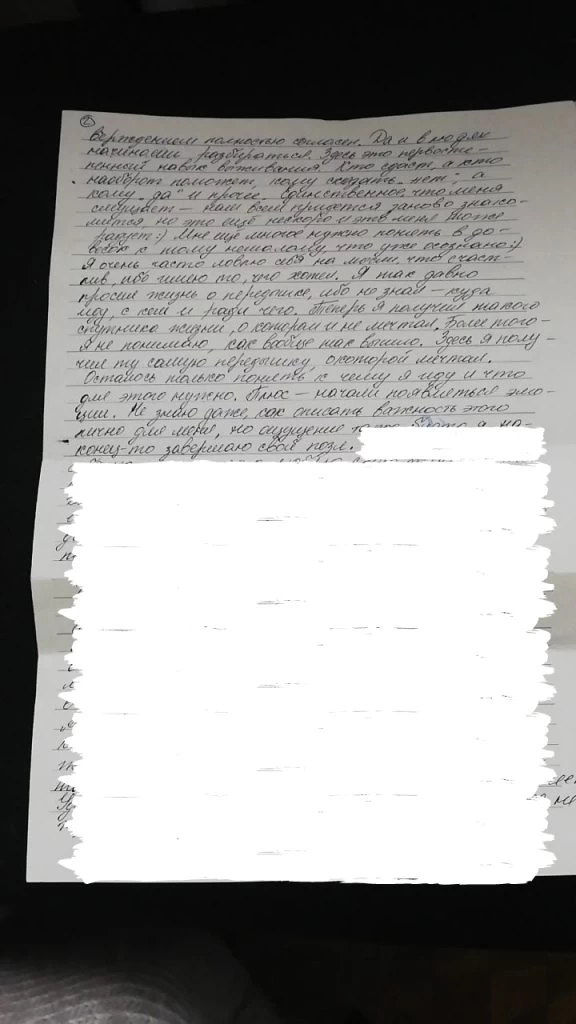 ②
верждением полностью согласен. Да и в людях
начинаешь разбираться. Здесь это первосте-
пенный навык выживания. Кто сдаст, а кто
наоборот поможет, кому сказать „нет", а
кому „да" и прочее. Единственное, что меня
смущает – нам всем придется заново знако-
миться, но это ещё нескоро и это меня тоже
радует:) Мне ещё многое нужно понять в до-
весок к тому немалому, что уже осознано:)
Я очень часто ловлю себя на мысли, что счаст-
лив, ибо имею то, что хотел. Я так давно
просил жизнь о передышке, ибо не знал – куда
иду, с кем и ради чего. Теперь я получил такого
спутника жизни, о котором и не мечтал. Более того-
я не понимаю, как вообще так вышло. Здесь я полу-
чил ту самую передышку, о которой мечтал.
Осталось только понять к чему я иду и что
для этого нужно. Плюс – начали появляться эмо-
ции. Не знаю даже, как описать важность этого
лично для меня, но ощущение
конец-то завершаю свой пазл.